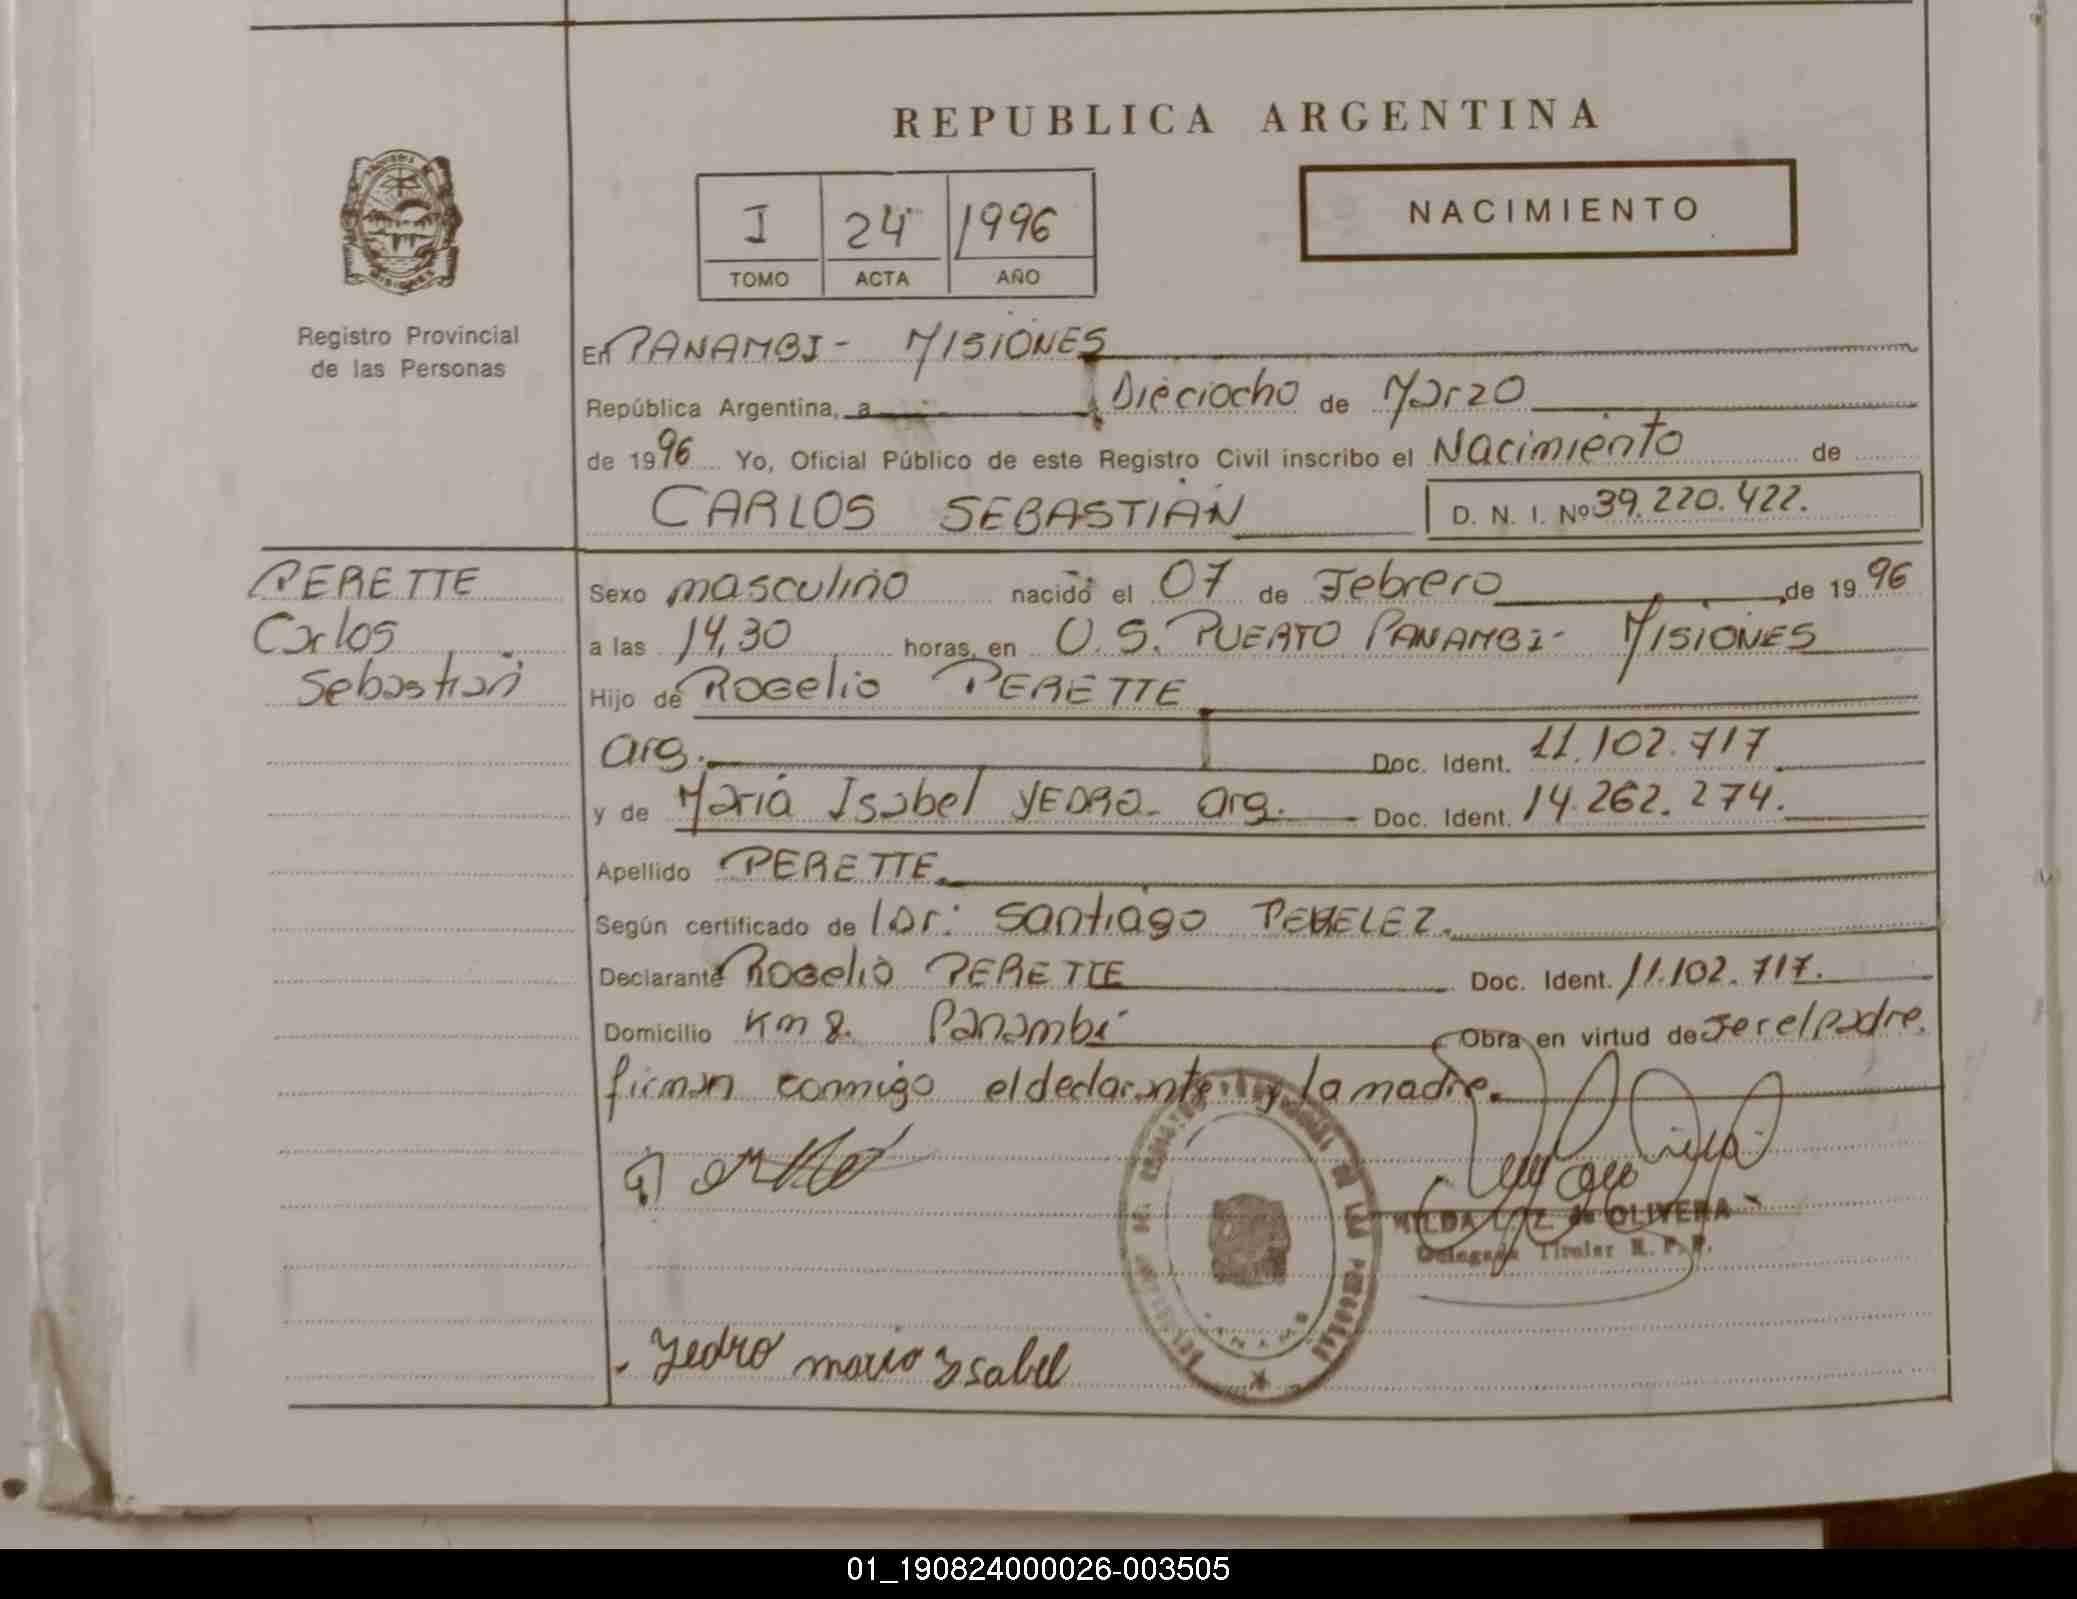 REPUBLICA ARGENTINA
NACIMIENTO
I 24 1996
TOMO ACTA AÑO
Registro Provincial
de las Personas
En PANAMBI - MISIONES
República Argentina, a Dieciocho de Marzo
de 1996 Yo, Oficial Público de este Registro Civil inscribo el Nacimiento de
CARLOS SEBASTIAN D. N. I. Nº 39.220.422.
PERETTE
Carlos
Sebastian
Sexo masculino nacido el 07 de Febrero de 1996
a las 14,30 horas, en U.S. PUERTO PANAMBI - MISIONES
Hijo de Rogelio PERETTE
arg. Doc. Ident. 11.102.717
y de Maria Isabel YEDRO - arg. Doc. Ident. 14.262.274.
Apellido PERETTE
Según certificado de Santiago
Declarante Rogelio PERETTE Doc. Ident. 11.102.717.
Domicilio Km 8. Panambi Obra en virtud de ser el padre.
firman conmigo el declarante y la madre.
HILDA de OLIVERA
Delegada Titular R. P. P.
Yedro maria Ysabel
01_190824000026-003505